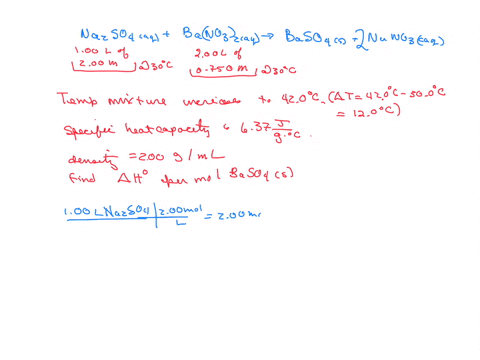 Na₂SO₄(aq) + Ba(NO₃)₂(aq) → BaSO₄(s) + 2 NaNO₃(aq)
1.00 L of 2.00 L of
2.00 m @30°C 0.750 m @30°C
Temp mixture increases to 42.0°C. (ΔT = 42.0°C - 30.0°C
= 12.0°C)
Specific heat capacity is 6.37 J/g·°C.
density = 200 g/mL
Find ΔH° per mol BaSO₄(s)
1.00 L Na₂SO₄ | 2.00 mol = 2.00 mo
L